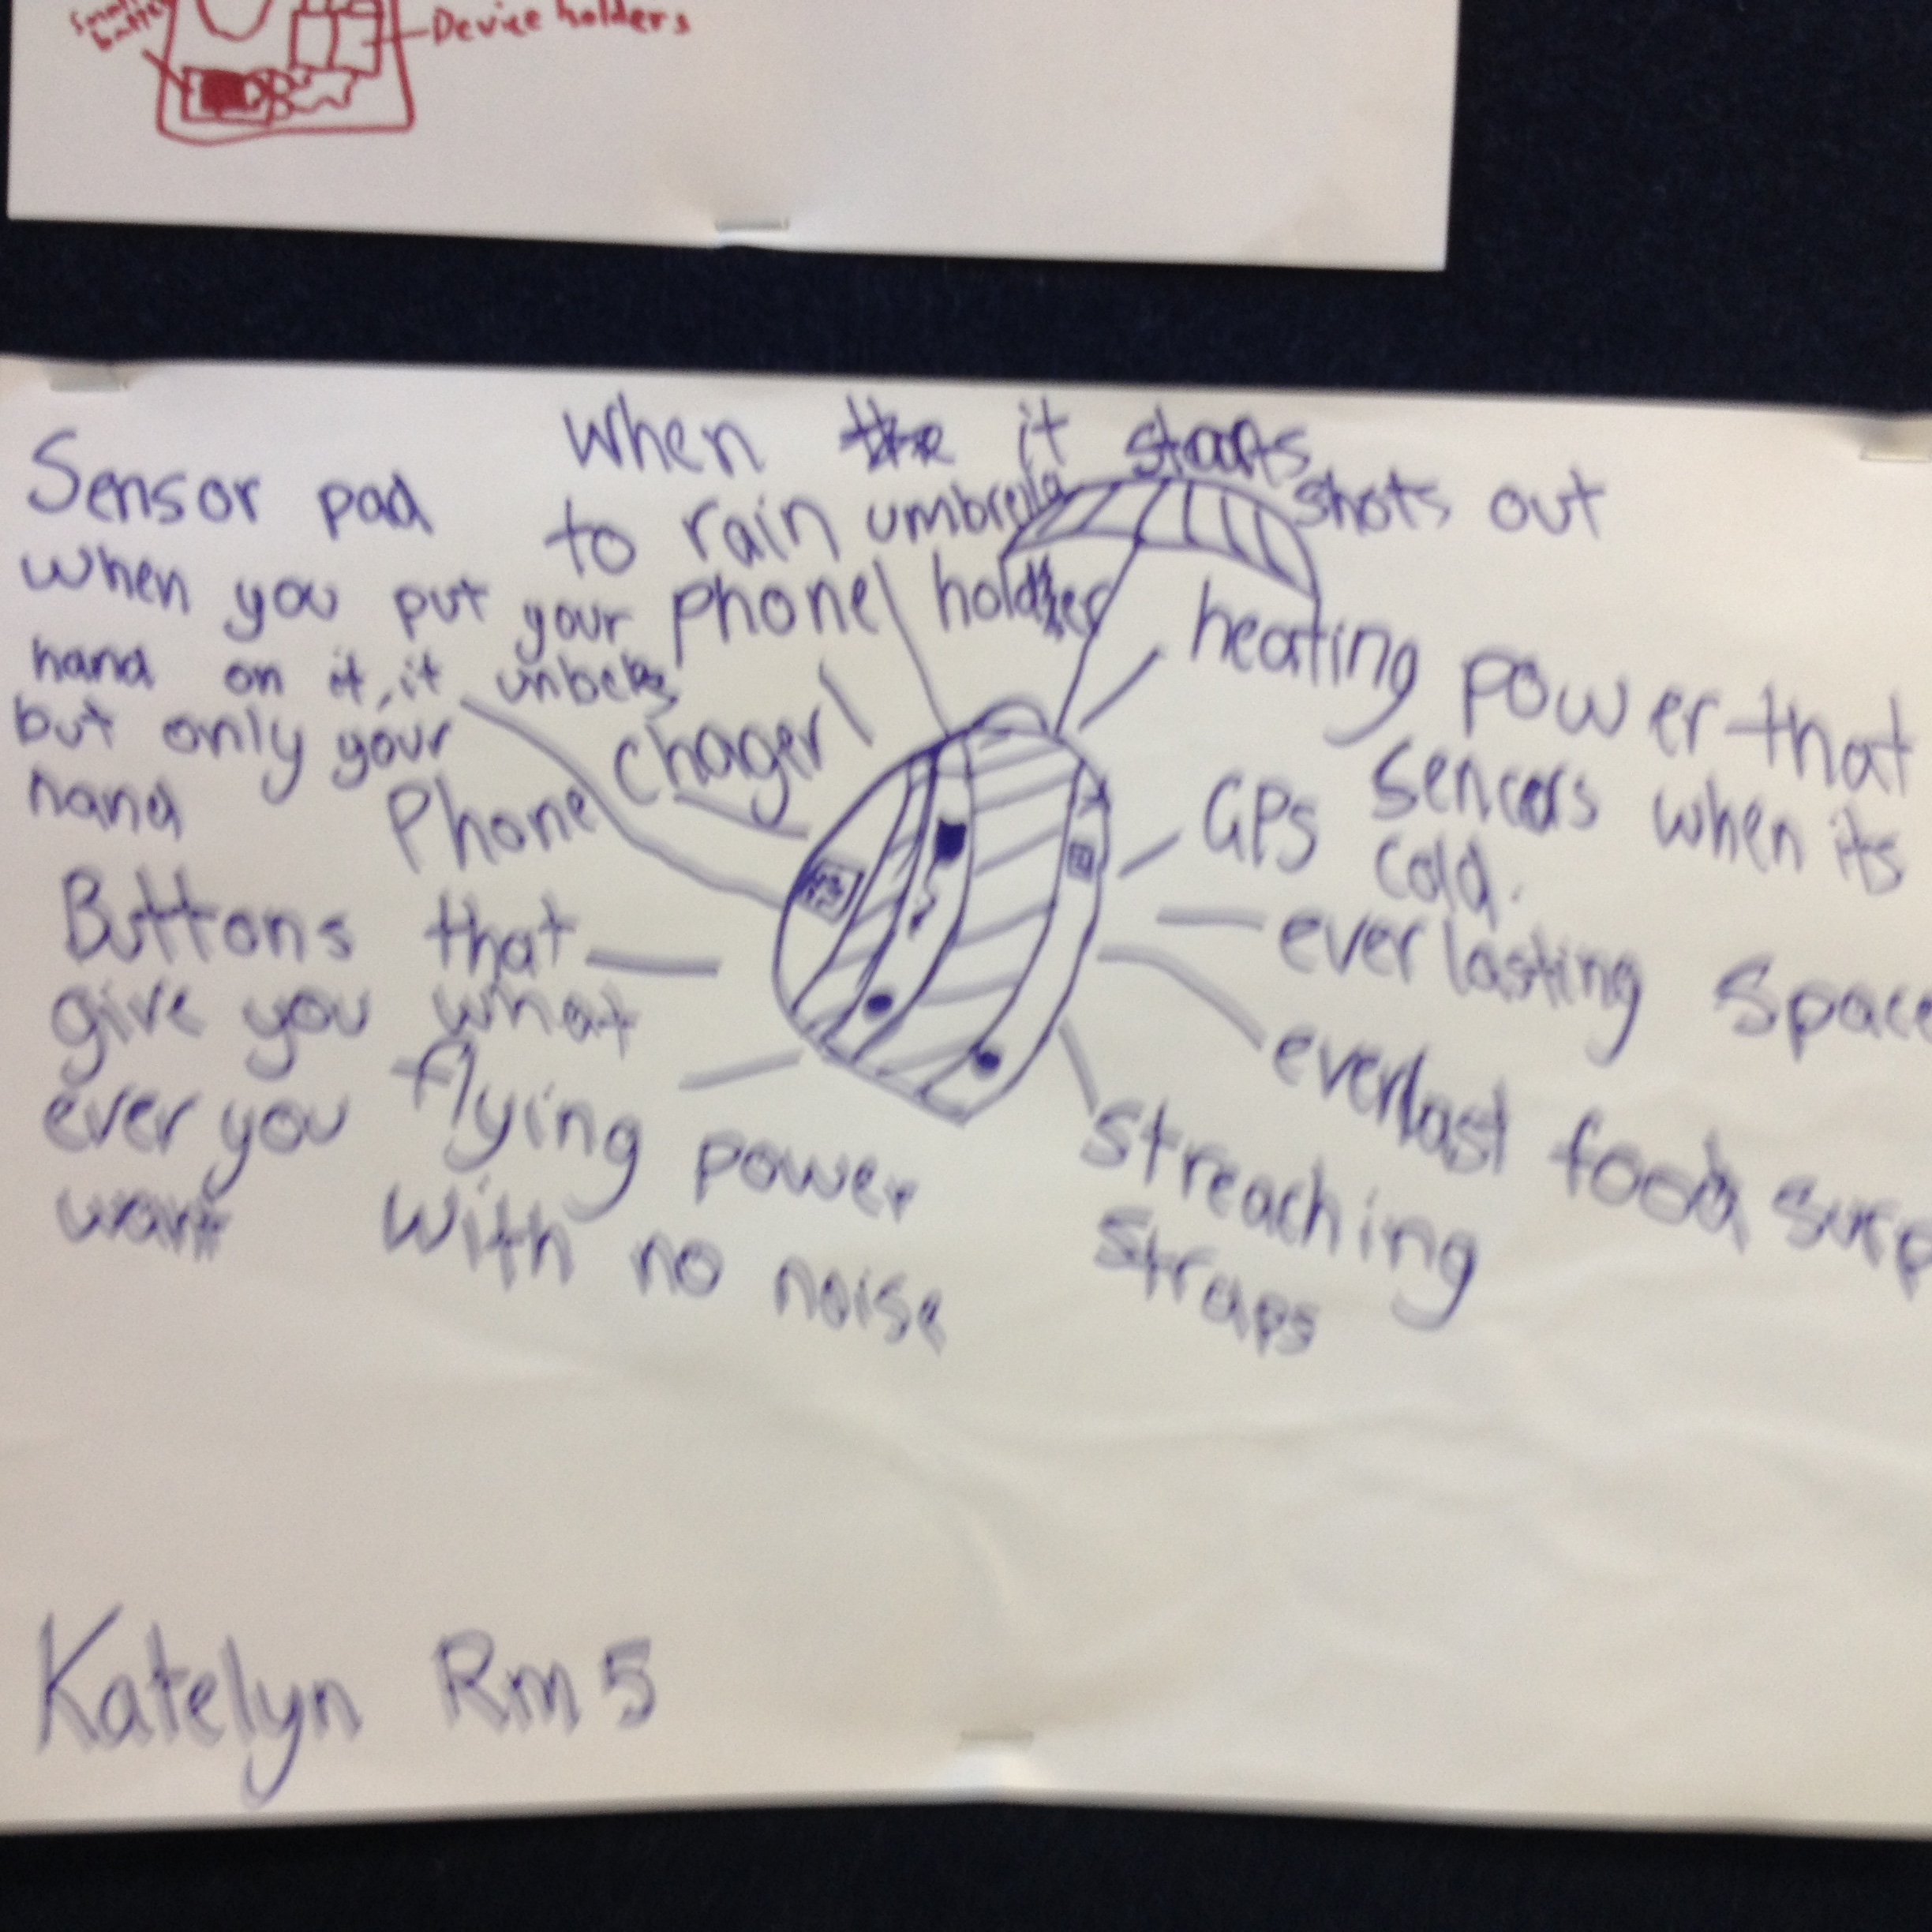 Device holders
when the it starts
to rain umbrella shots out
Sensor pad
when you put your
hand on it, it unlocks
but only your
hand
phone holder
Phone chager
heating power that
sencers when its
cold.
GPS
everlasting space
everlast food
streaching
straps
Buttons that
give you what
ever you
want
flying power
with no noise
Katelyn Rm 5